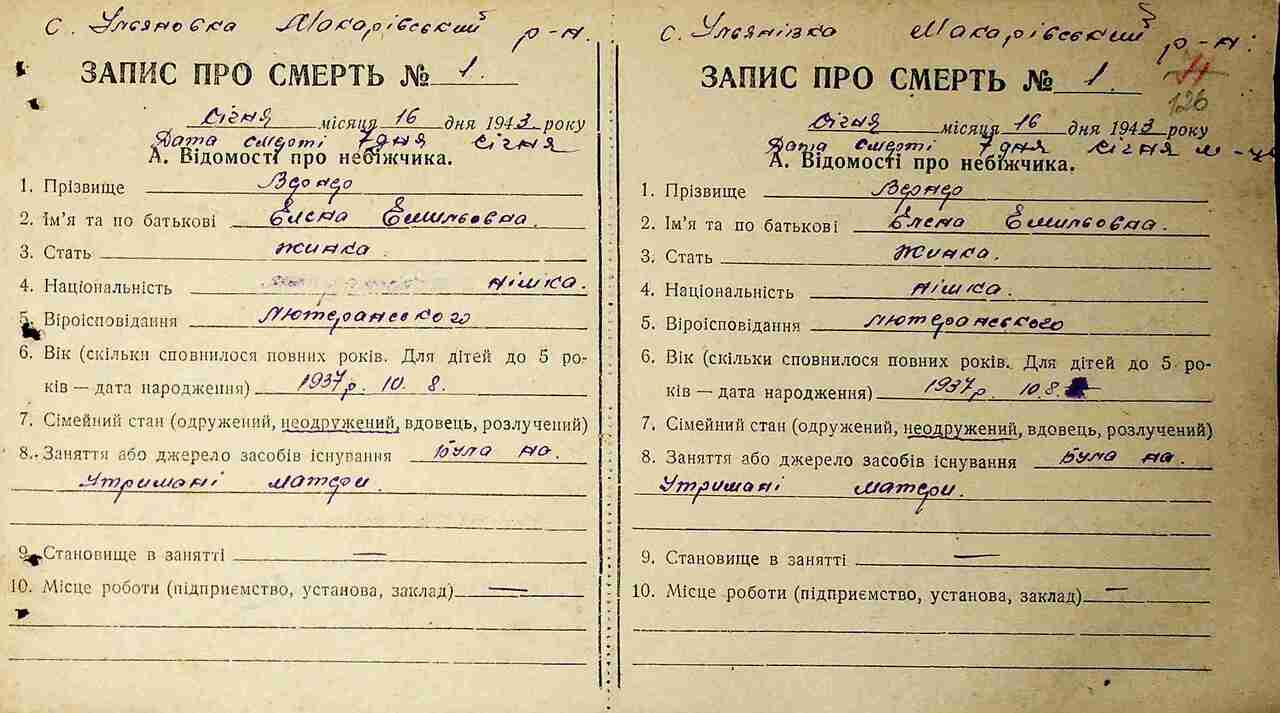 с. Ульяновка Макарівський р-н.
ЗАПИС ПРО СМЕРТЬ № 1.
січня місяця 16 дня 1943 року
Дата смерті 7 дня січня
А. Відомості про небіжчика.
1. Прізвище Вернер
2. Ім’я та по батькові Елена Емильовна.
3. Стать жинка.
4. Національність німка.
5. Віроісповідання лютеранского
6. Вік (скільки сповнилося повних років. Для дітей до 5 ро-
ків — дата народження) 1937 р. 10. 8.
7. Сімейний стан (одружений, неодружений, вдовець, розлучений)
8. Заняття або джерело засобів існування Була на.
Утримані матери.
9. Становище в занятті —
10. Місце роботи (підприємство, установа, заклад) —
с. Ульянівка Макарівський р-н.
11
126
ЗАПИС ПРО СМЕРТЬ № 1.
січня місяця 16 дня 1943 року
Дата смерті 7 дня січня м-ця
А. Відомості про небіжчика.
1. Прізвище Вернер
2. Ім’я та по батькові Елена Емильовна.
3. Стать жинка.
4. Національність німка.
5. Віроісповідання лютеранского
6. Вік (скільки сповнилося повних років. Для дітей до 5 ро-
ків — дата народження) 1937 р. 10. 8.
7. Сімейний стан (одружений, неодружений, вдовець, розлучений)
8. Заняття або джерело засобів існування Була на.
Утримані матери.
9. Становище в занятті —
10. Місце роботи (підприємство, установа, заклад) —